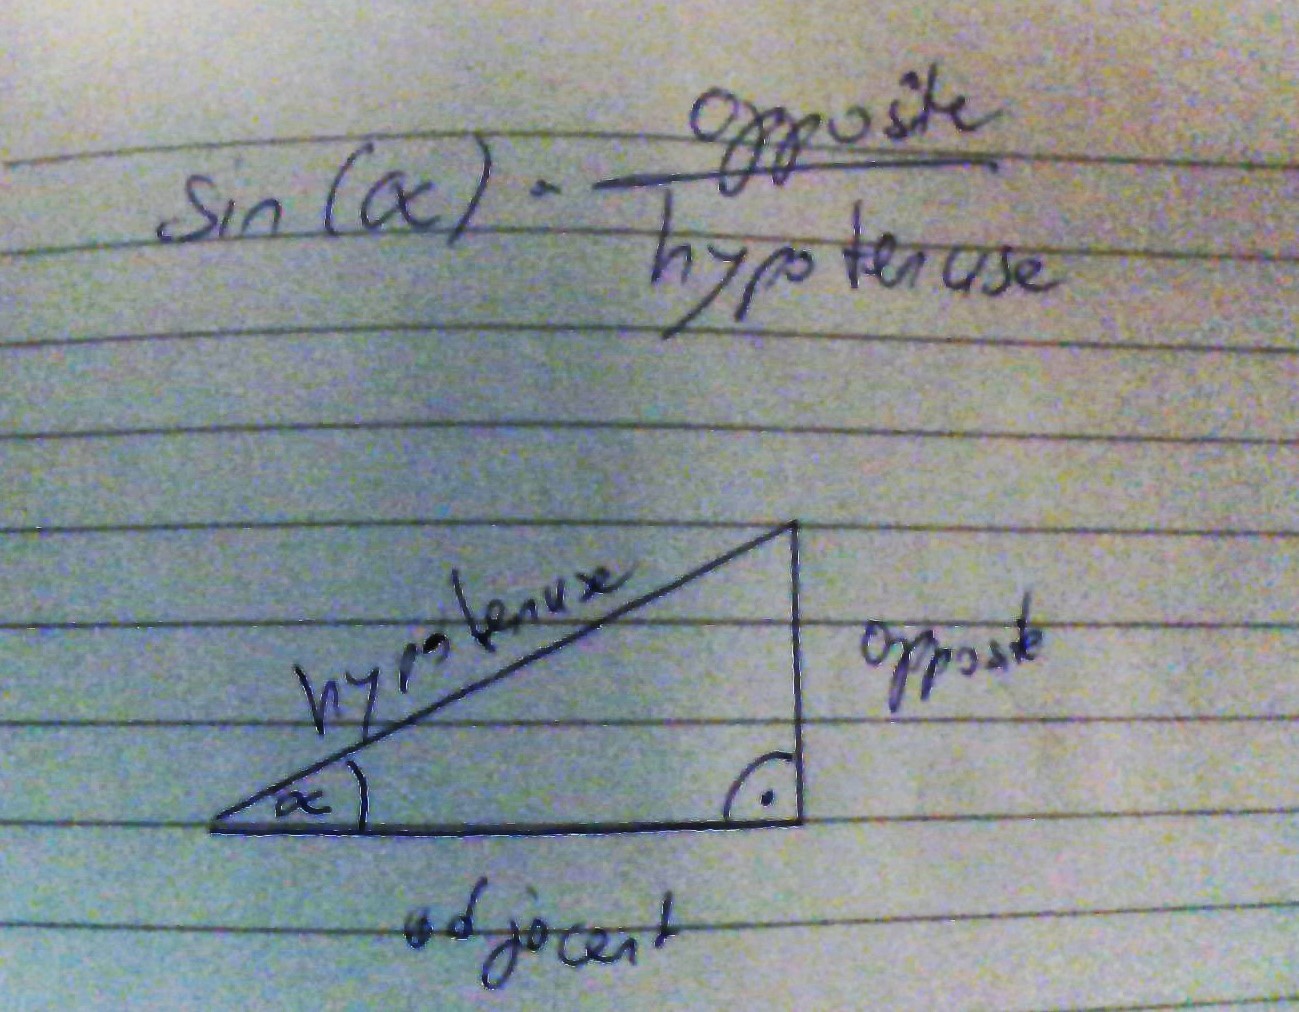 sin (α) = opposite
hypotenuse
hypotenuse
opposite
α
adjacent